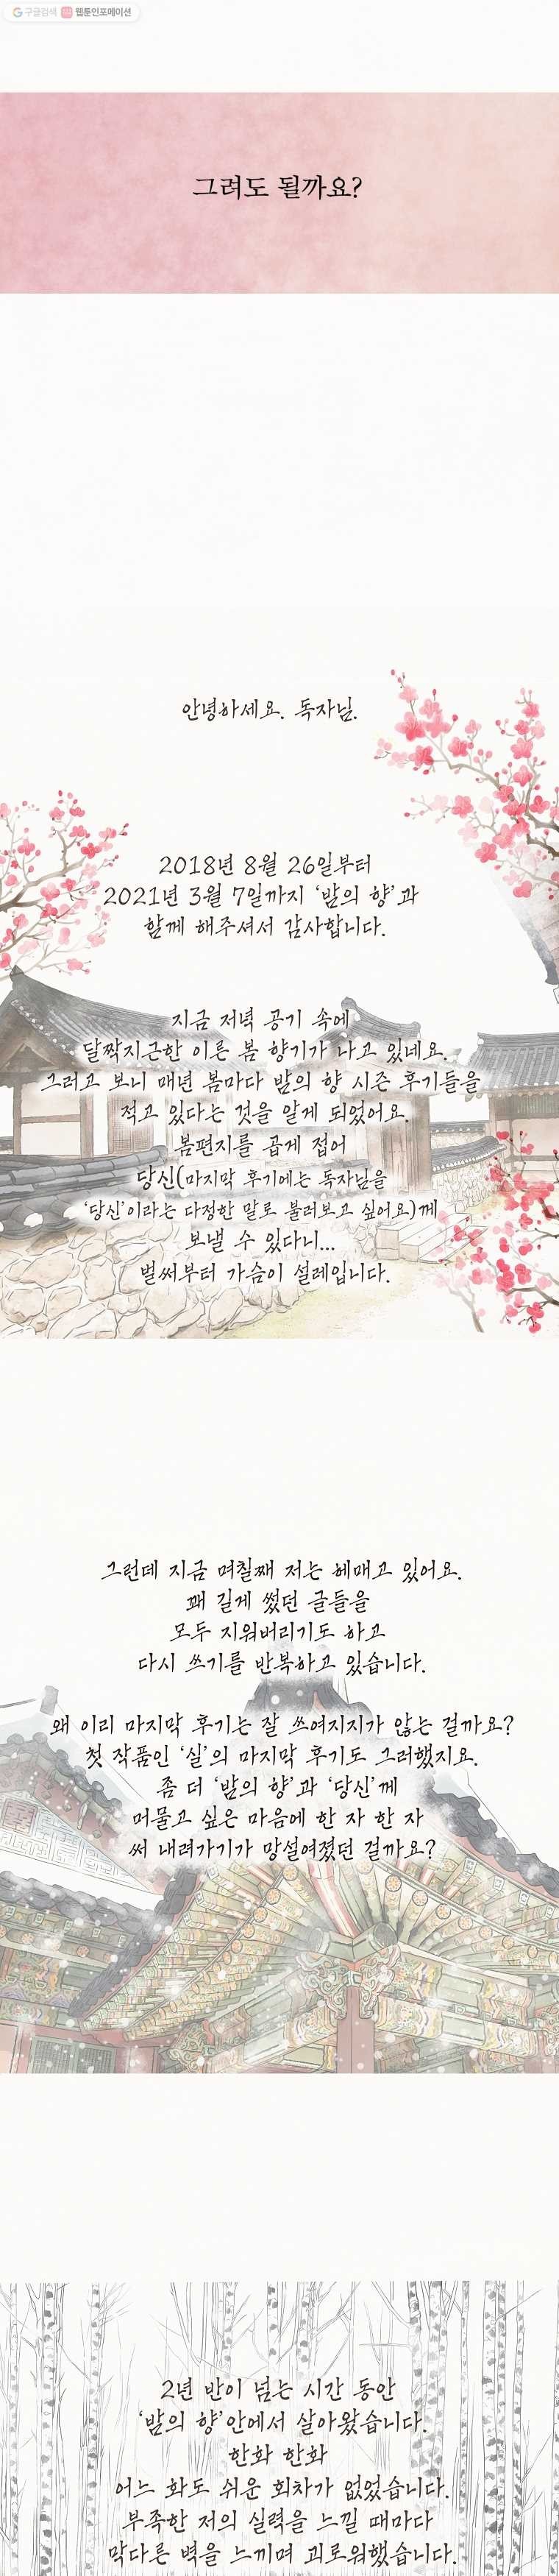 구글검색 웹툰인포메이션
그려도 될까요?
안녕하세요. 독자님.
2018년 8월 26일부터
2021년 3월 7일까지 '밤의 향'과
함께 해주셔서 감사합니다.
지금 저녁 공기 속에
달짝지근한 이른 봄 향기가 나고 있네요.
그러고 보니 매년 봄마다 밤의 향 시즌 후기들을
적고 있다는 것을 알게 되었어요.
봄편지를 곱게 접어
당신(마지막 후기에는 독자님을
'당신'이라는 다정한 말로 불러보고 싶어요)께
보낼 수 있다니...
벌써부터 가슴이 설레입니다.
그런데 지금 며칠째 저는 헤매고 있어요.
꽤 길게 썼던 글들을
모두 지워버리기도 하고
다시 쓰기를 반복하고 있습니다.
왜 이리 마지막 후기는 잘 쓰여지지가 않는 걸까요?
첫 작품인 '실'의 마지막 후기도 그러했지요.
좀 더 '밤의 향'과 '당신'께
머물고 싶은 마음에 한 자 한 자
써 내려가기가 망설여졌던 걸까요?
2년 반이 넘는 시간 동안
'밤의 향'안에서 살아왔습니다.
한화 한화
어느 화도 쉬운 회차가 없었습니다.
부족한 저의 실력을 느낄 때마다
막다른 벽을 느끼며 괴로워했습니다.